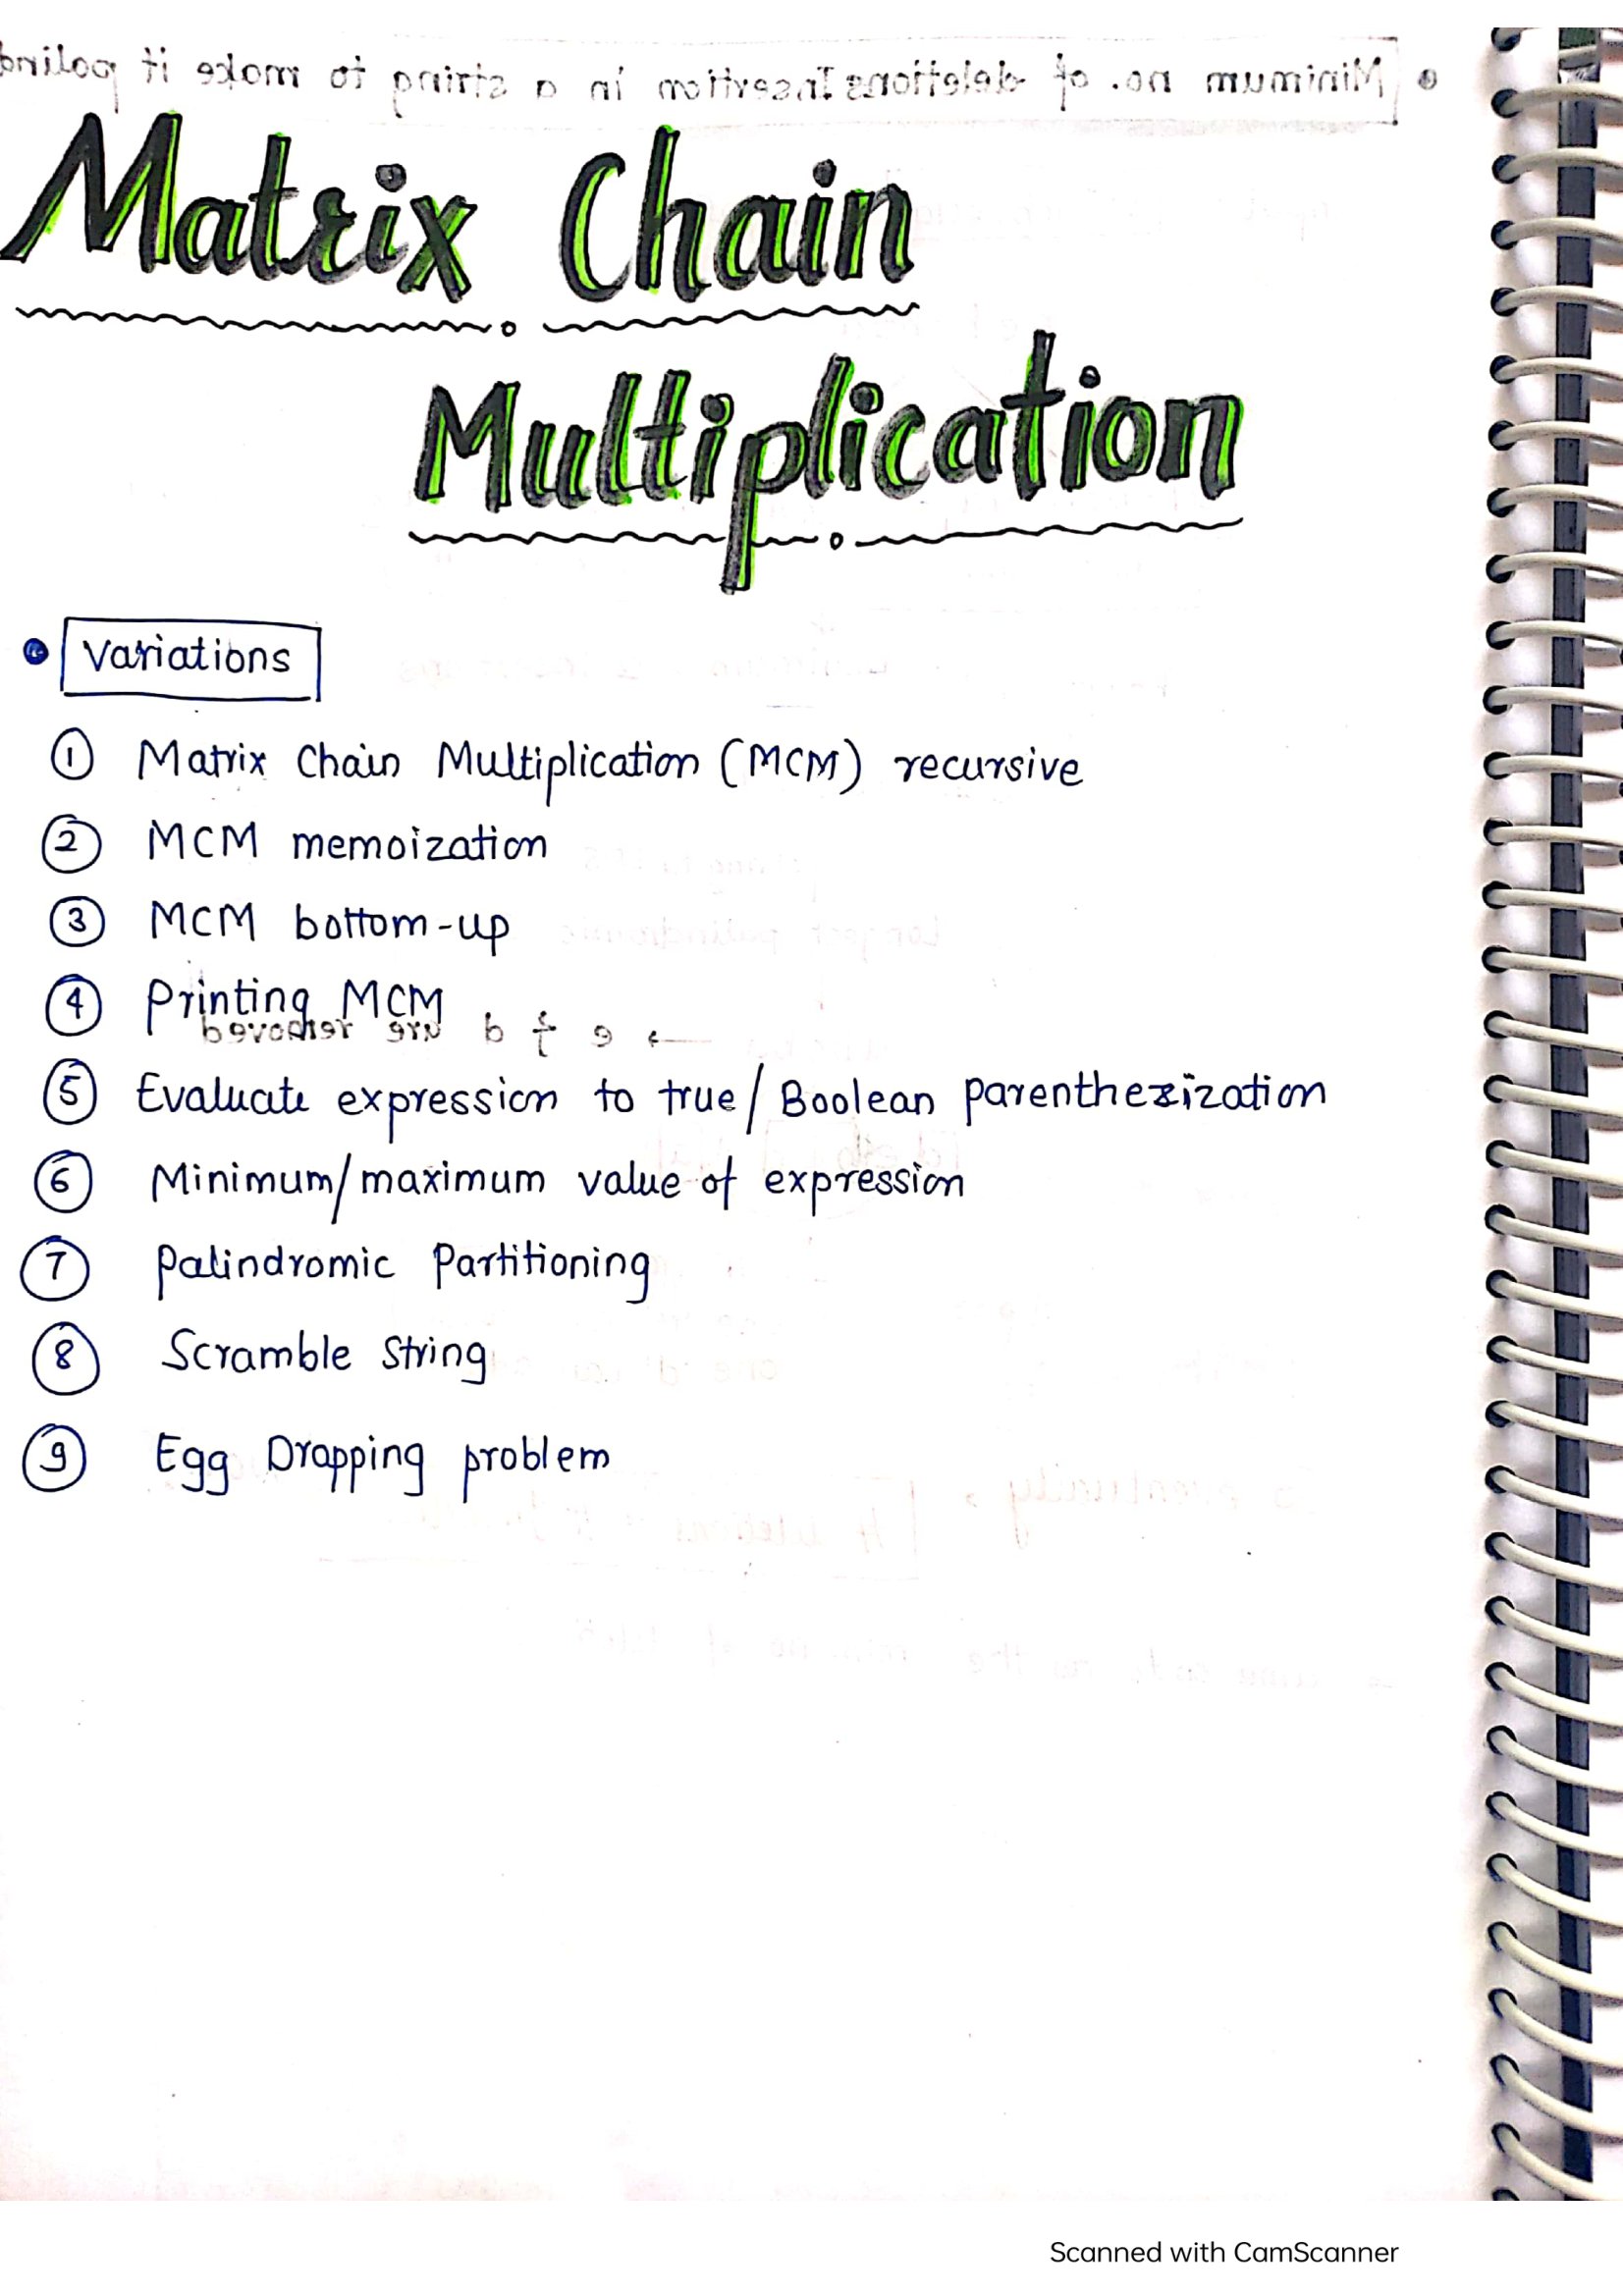 Minimum no. of deletions Insertion in a string to make it palind
Matrix Chain
Multiplication
Variations
1 Matrix Chain Multiplication (MCM) recursive
2 MCM memoization
3 MCM bottom-up
4 Printing MCM
→ e f d are removed
5 Evaluate expression to true/ Boolean parenthesization
6 Minimum/maximum value of expression
7 Palindromic Partitioning
8 Scramble String
9 Egg Dropping problem
Scanned with CamScanner